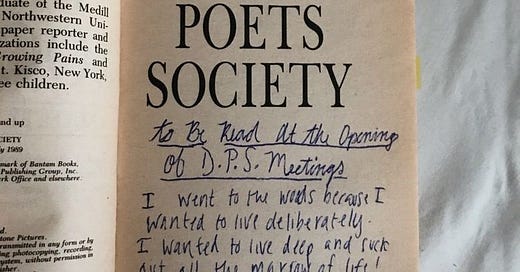 duate of the Medill
Northwestern Uni-
paper reporter and
zations include the
Growing Pains and
t. Kisco, New York,
ee children.
nd up
CIETY
y 1989
mark of Bantam Books,
Publishing Group, Inc.
rk Office and elsewhere.
d.
tone Pictures.
transmitted in any form or by
ng, photocopying, recording,
ystem, without permission in
isher.
POETS
SOCIETY
to Be Read At the Opening
of D.P.S. Meetings
I went to the woods because I
wanted to live deliberately.
I wanted to live deep and suck
out all the marrow of life!